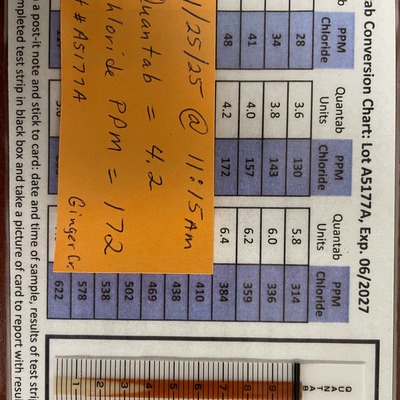 ab Conversion Chart: Lot A5177A, Exp. 06/2027
PPM Quantab PPM Quantab PPM
Chloride Units Chloride Units Chloride
28 3.6 130 5.8 314
34 3.8 143 6.0 336
41 4.0 157 6.2 359
48 4.2 172 6.4 384
410
438
469
502
538
578
622
1/25/25 @ 11:15AM
Quantab = 4.2
hloride PPM = 172
t #A5177A
Ginger Cr.
a post-it note and stick to card: date and time of sample, results of test stri
mpleted test strip in black box and take a picture of card to report with resul
QUANTAB
9
8
7
6
5
4
3
2
1